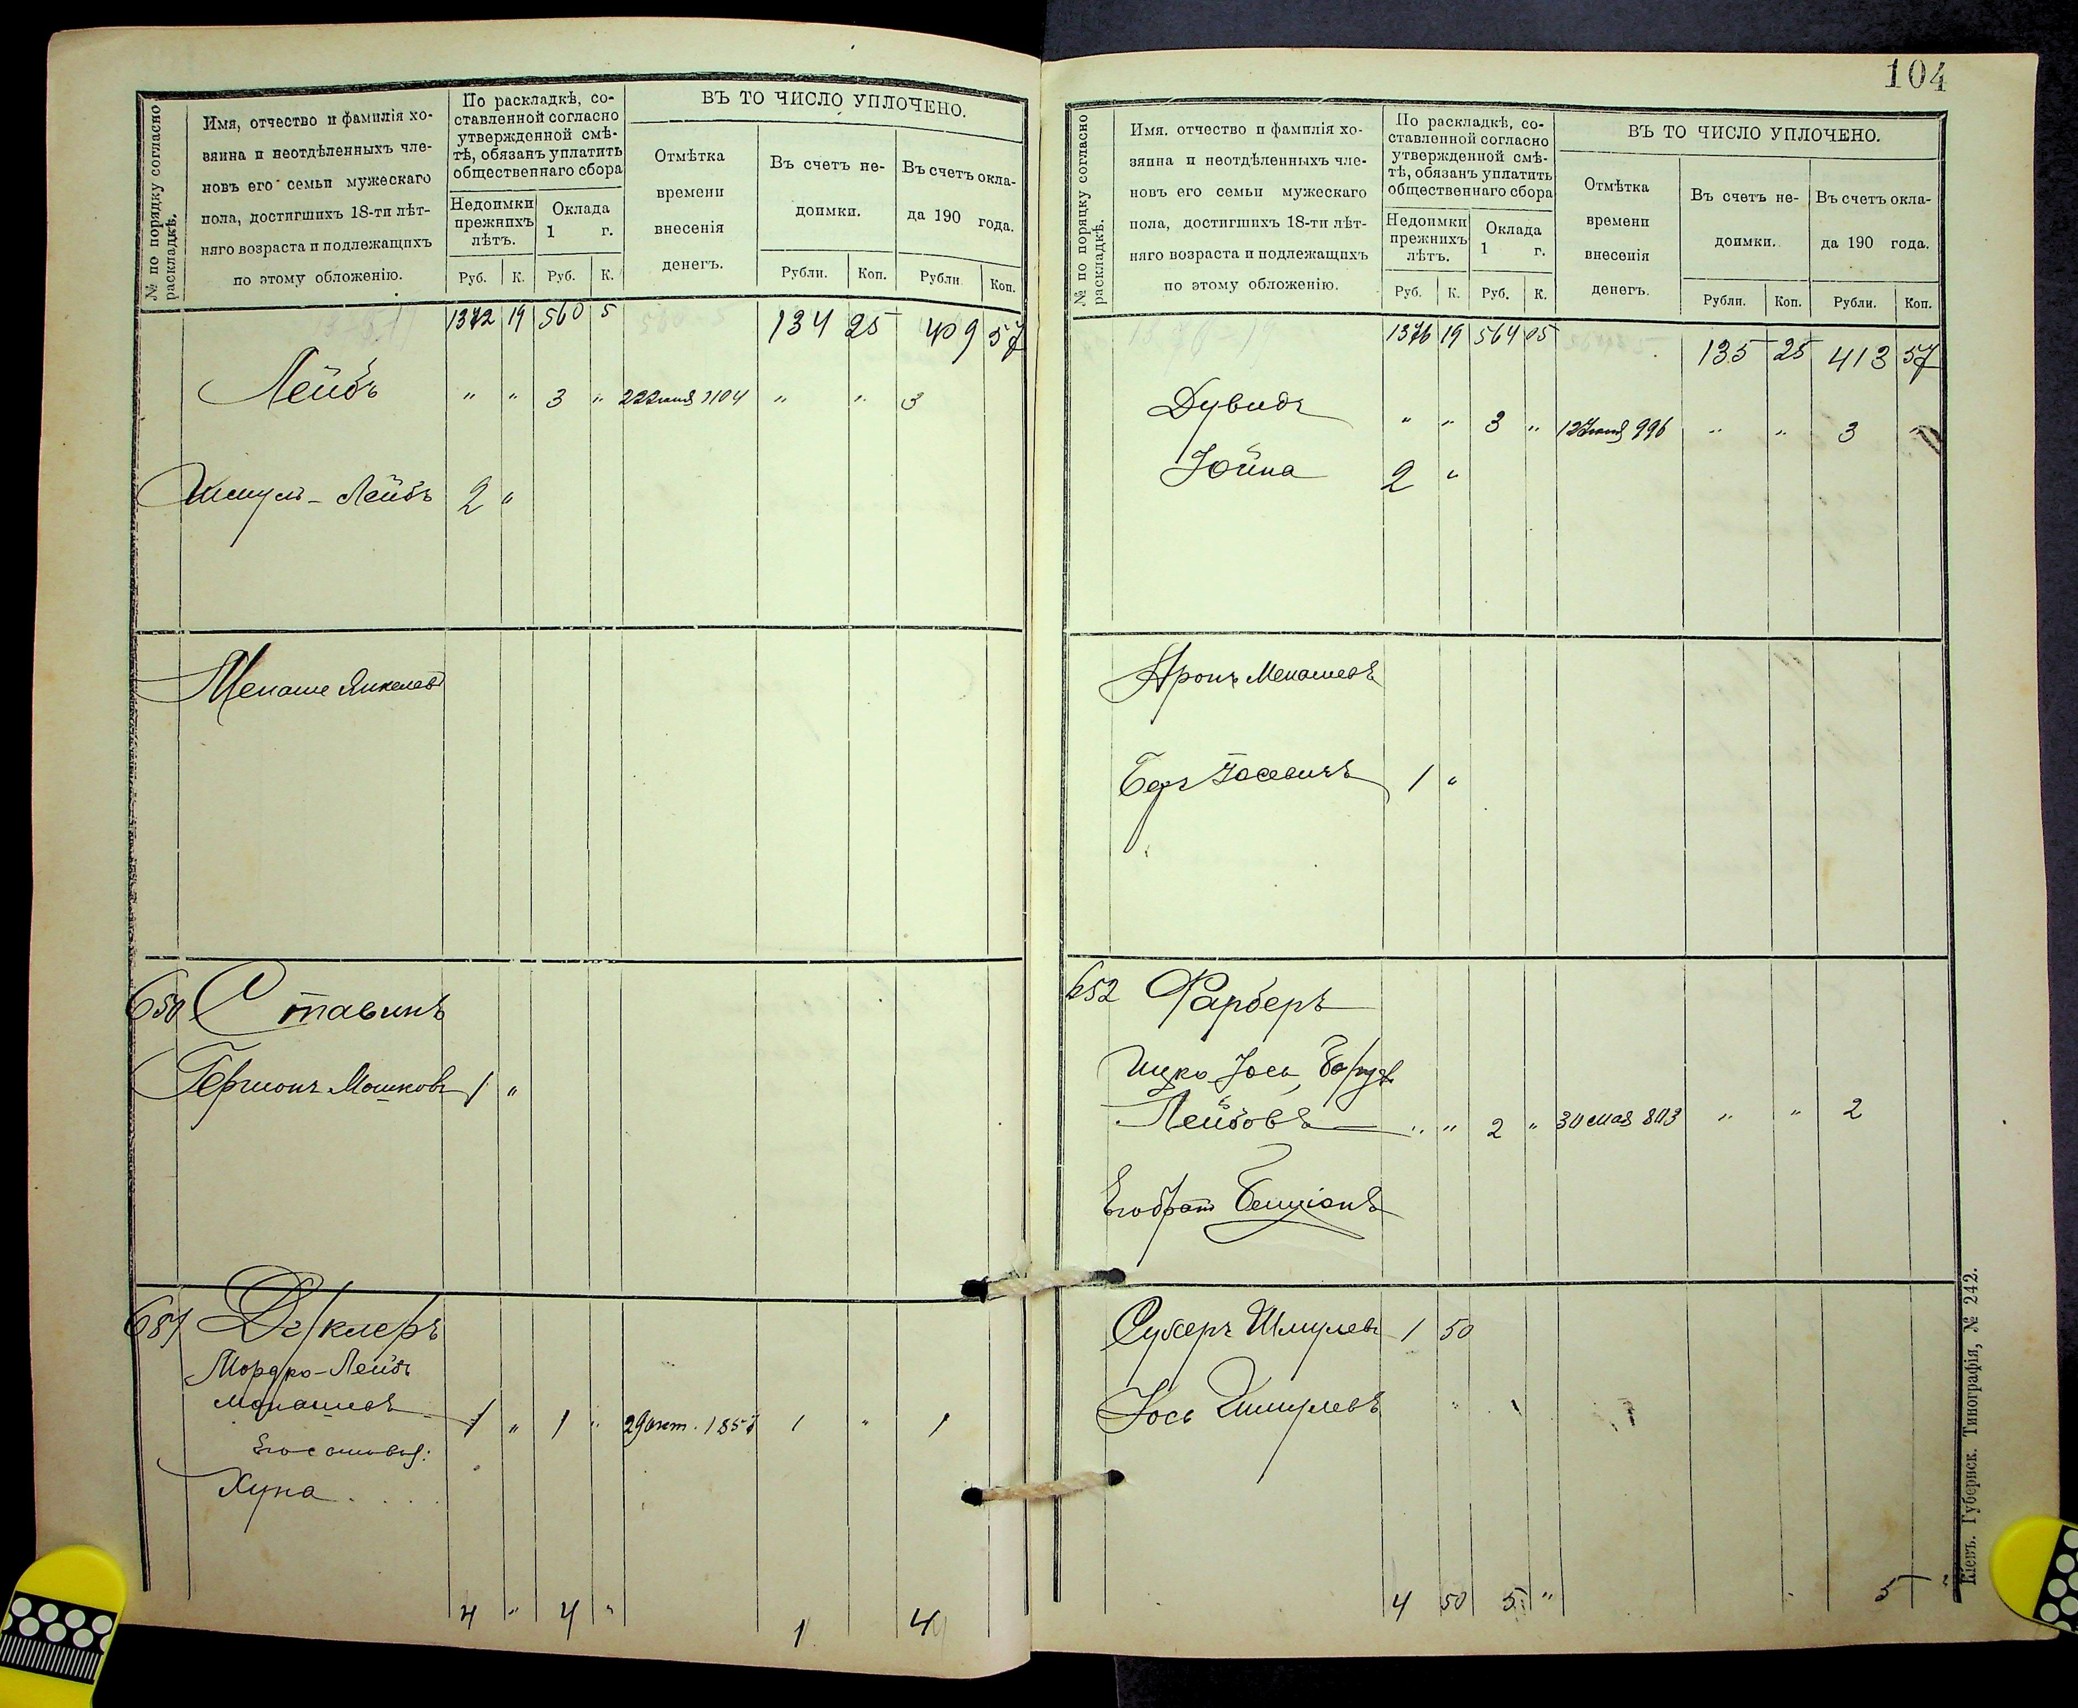 № по порядку согласно раскладкѣ.
Имя, отчество и фамилія хо-
зяина и неотдѣленныхъ чле-
новъ его семьи мужескаго
пола, достигшихъ 18-ти лѣт-
няго возраста и подлежащихъ
по этому обложенію.
По раскладкѣ, со-
ставленной согласно
утвержденной смѣ-
тѣ, обязанъ уплатить
общественнаго сбора
Недоимки
прежнихъ
лѣтъ.
Оклада
1 г.
Руб. К. Руб. К.
ВЪ ТО ЧИСЛО УПЛОЧЕНО.
Отмѣтка
времени
внесенія
денегъ.
Въ счетъ не-
доимки.
Рубли. Коп.
Въ счетъ окла-
да 190 года.
Рубли Коп.
1372 19 560 5 134 25 409 57
Лейбъ " " 3 " 22 1104 " " 3
Шмуль-Лейбъ 2 "
Менаше Янкелевъ
650 Ставинъ
Гершонъ Мошковъ 1 "
651 Деклеръ
Мордко-Лейбъ
Монашевъ 1 " 1 " 29 окт. 1857 1 " 1
Его сыновья:
Хуна . . . .
4 " 4 " 1 4
104
№ по порядку согласно раскладкѣ.
Имя. отчество и фамилія хо-
зяина и неотдѣленныхъ чле-
новъ его семьи мужескаго
пола, достигшихъ 18-ти лѣт-
няго возраста и подлежащихъ
по этому обложенію.
По раскладкѣ, со-
ставленной согласно
утвержденной смѣ-
тѣ, обязанъ уплатить
общественнаго сбора
Недоимки
прежнихъ
лѣтъ.
Оклада
1 г.
Руб. К. Руб. К.
ВЪ ТО ЧИСЛО УПЛОЧЕНО.
Отмѣтка
времени
внесенія
денегъ.
Въ счетъ не-
доимки.
Рубли. Коп.
Въ счетъ окла-
да 190 года.
Рубли. Коп.
1376 19 564 05 135 25 413 57
Дувидъ " " 3 " 12 996 " " 3 "
Іойна 2 "
Аронъ Менашевъ
Беръ Іосевичъ 1 "
652 Фарберъ
Ицко Іось
Лейбовъ " " 2 " 30 мая 803 " " 2
Его братъ Бенціонъ
Сухеръ Шмулевъ 1 50
Іось Шмулевъ "
4 50 5 " 5
Кіевъ. Губернск. Типографія, № 242.